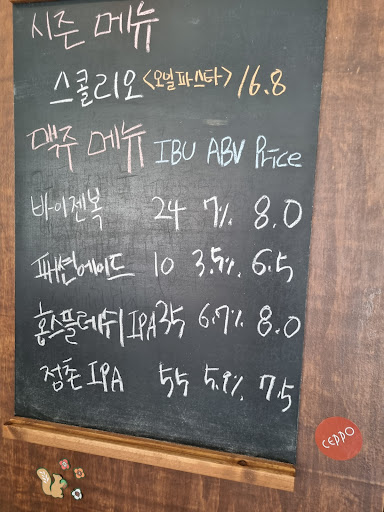 시즌 메뉴
스콜리오 <오일파스타> 16.8
맥주 메뉴 IBU ABV Price
바이젠복 24 7% 8.0
패션에이드 10 3.5% 6.5
홉스플래쉬IPA 35 6.7% 8.0
점촌IPA 55 5.9% 7.5
CEPPO